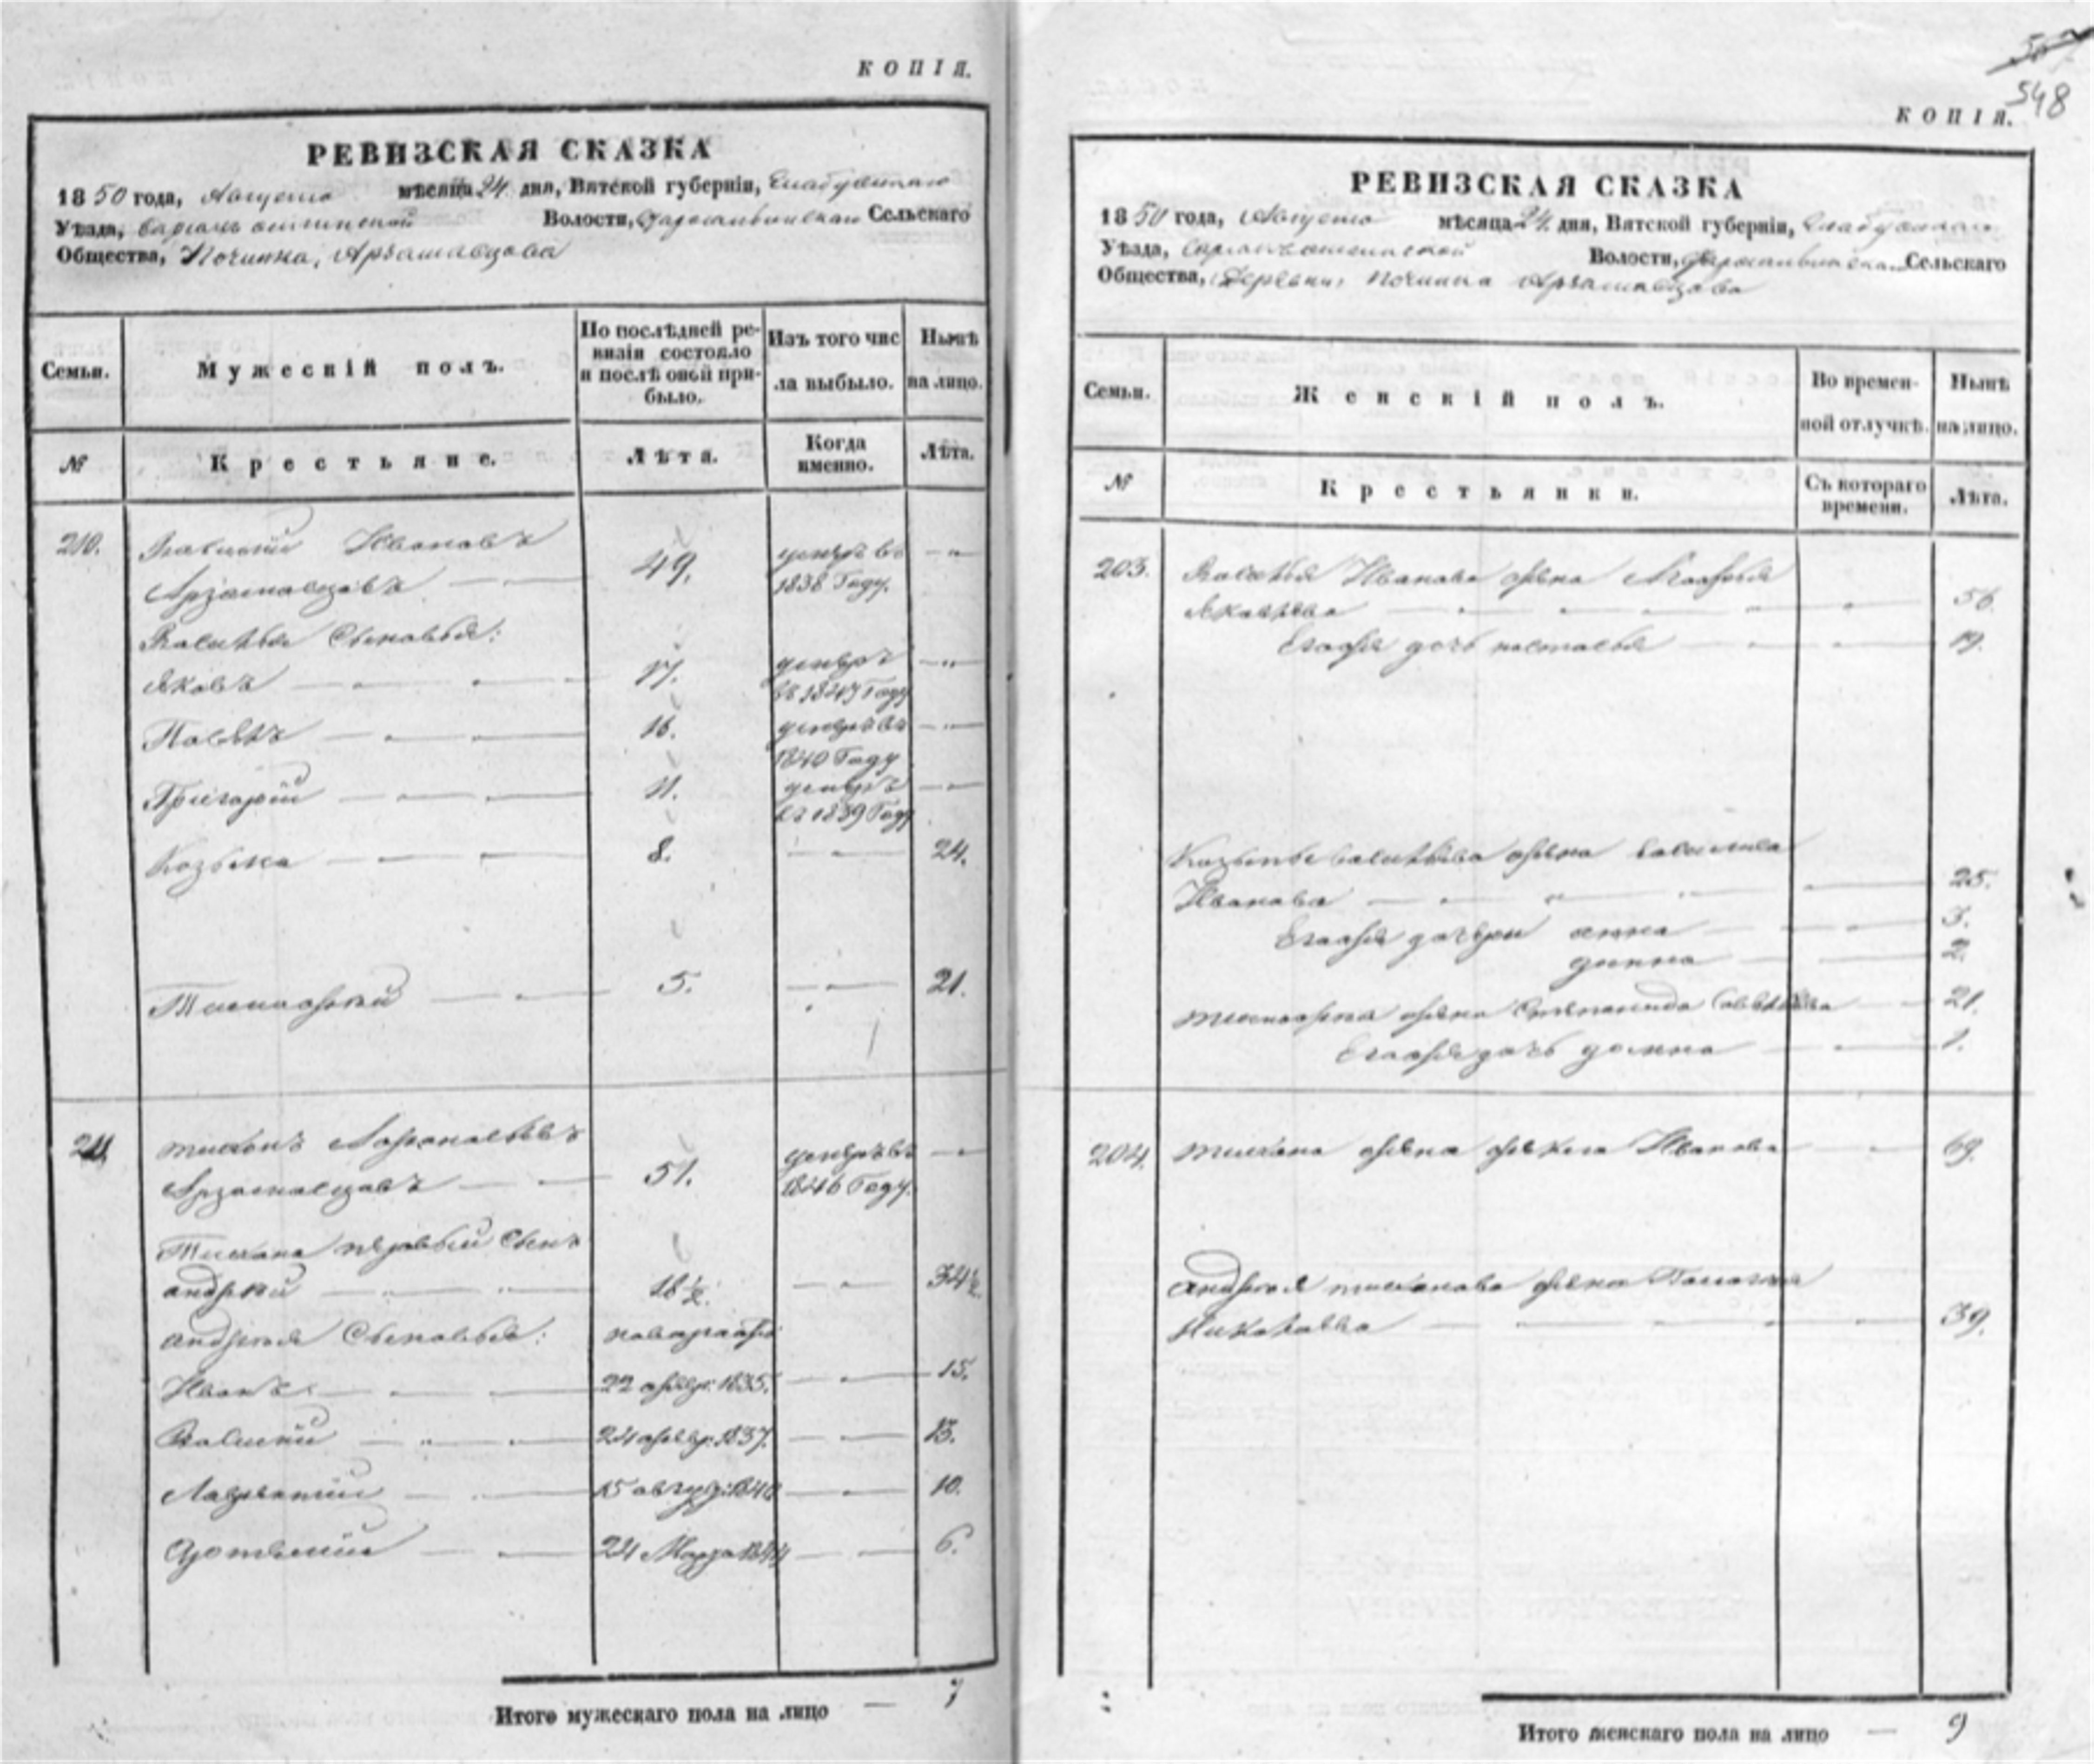 КОПІЯ.
РЕВИЗСКАЯ СКАЗКА
1850 года, Августа мѣсяца 24 дня, Вятской губерніи, Елабужскаго
Уѣзда, Волости, Сельскаго
Общества, Починка, Арзамасцова
Семьи.
Мужескій полъ.
По послѣдней ре-
визіи состояло
и послѣ оной при-
было.
Изъ того чис
ла выбыло.
Нынѣ
на лицо.
№
Крестьяне.
Лѣта.
Когда
именно.
Лѣта.
210. Василій Ивановъ 49. умеръ въ
Арзамасцовъ 1838 Году.
Василья Сыновья:
Яковъ 17. умеръ
въ 1847 Году
Павелъ 16. умеръ въ
1840 Году
Григорій 11. умеръ
въ 1839 Году
Козьма 8. 24.
Тимофей 5. 21.
211 Тихонъ Афанасьевъ 51. умеръ въ
Арзамасцовъ 1846 Году.
Тихона первый Сынъ
андрей 18½. 34½.
андрея Сыновья:
Иванъ 22 февр: 1835. 15.
Василій 24 февр: 1837. 13.
Лаврентій 15 август: 1840 10.
Артемій 24 Марта 1844 6.
Итого мужескаго пола на лицо — 7
548
КОПІЯ.
РЕВИЗСКАЯ СКАЗКА
1850 года, Августа мѣсяца 24 дня, Вятской губерніи,
Уѣзда, Волости, Сельскаго
Общества, Деревни, Починка Арзамасцова
Семьи.
Женскій полъ.
Во времен-
ной отлучкѣ.
Нынѣ
на лицо.
№
Крестьянки.
Съ котораго
времени.
Лѣта.
203. Василья Иванова жена
Яковлева 56.
Егожа дочь настасья 19.
Козьмы васильева жена василиса
Иванова 25.
Егожа дочери анна 3.
2.
тимофея жена Степанида Савельева 21.
Егожа дочь домна 1.
204. тихона жена фекла Иванова 69.
андрея тихонова жена
Николаева 39.
Итого женскаго пола на лицо — 9